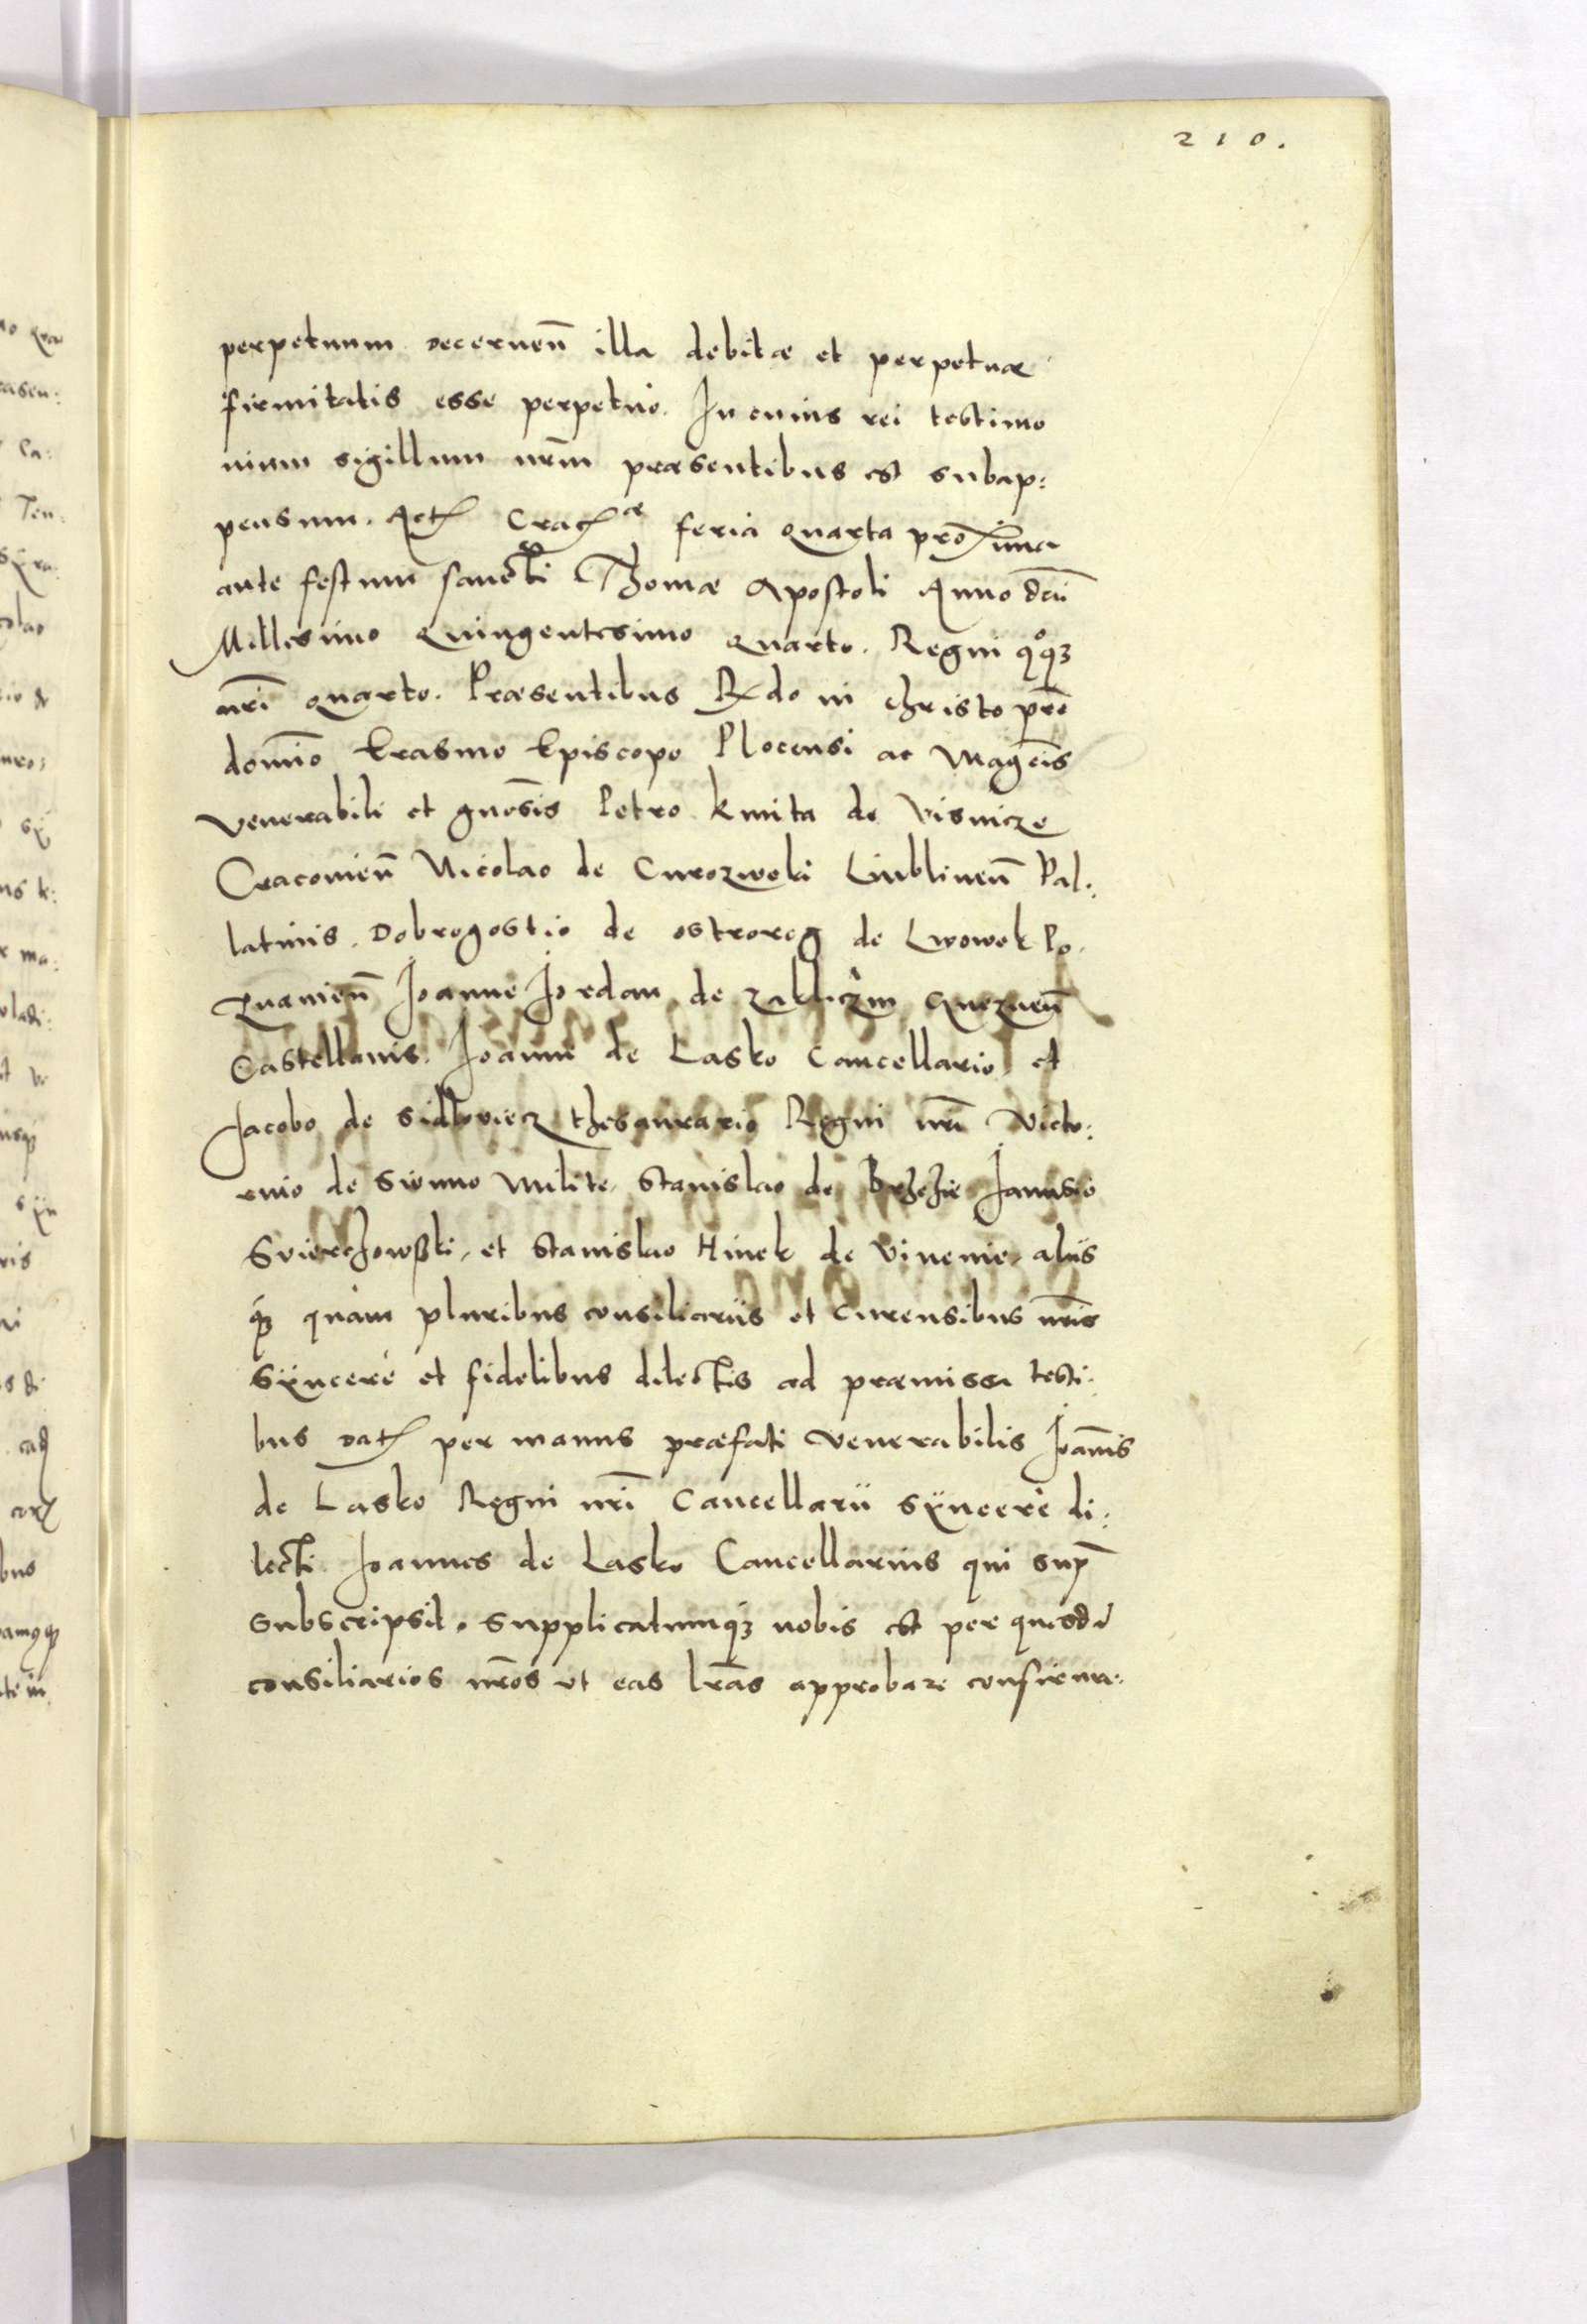 210.
perpetuum decernen̄ illa debitæ et perpetuæ
firmitatis esse perpetuo. In cuius rei testimo
nium sigillum nr̄m præsentibus est subap:
pensum. Act Crac æ feria quarta proxima
ante festum sancti Thomæ Apostoli Anno dn̄i
Millesimo Quingentesimo quarto. Regni qoqȝ
nr̄i quarto. Præsentibus Rdo in christo pr̄e
domīo Erasmo Episcopo Plocensi ac Magcis
Venerabili et gnosis Petro Kmita de Visnicze
Cracovien̄ Nicolao de Curozweki Liublinen̄ Pal:
latinis. Dobrogostio de ostrorog de Lwowek Po.
znanien̄ Joanne Jordan de zakliczin
Castellanis. Joanne de Lasko Cancellario et
Jacobo de sidlowiecz thesaurario Regni nr̄i Victo:
rino de sienno Milite, Stanislao de Janusio
Svierchowski, et Stanislao Hinek de Vinenie, aliis
qȝ quam pluribus consiliariis et Curensibus nr̄is
syncere et fidelibus dilectis ad præmissa testi:
bus dat per manus præfati Venerabilis Joan̄is
de Lasko Regni nr̄i Cancellarii syncere di:
lecti. Joannes de Lasko Cancellarius qui sup̄
subscripsit. supplicatumqȝ nobis est per quosdā
consiliarios nr̄os ut eas lr̄as approbare confirma: